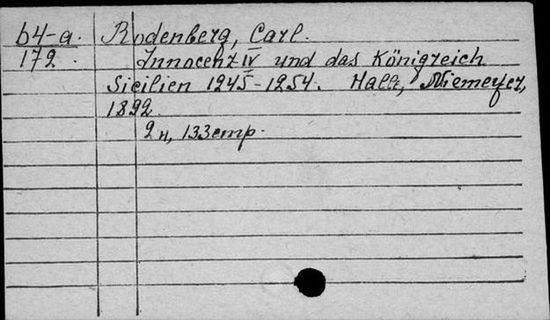 b4-a. Rodenberg, Carl.
172. Innocenz IV und das Königreich
Sicilien 1245-1254. Halle, Niemeyer,
1892.
2 н, 133 стр.